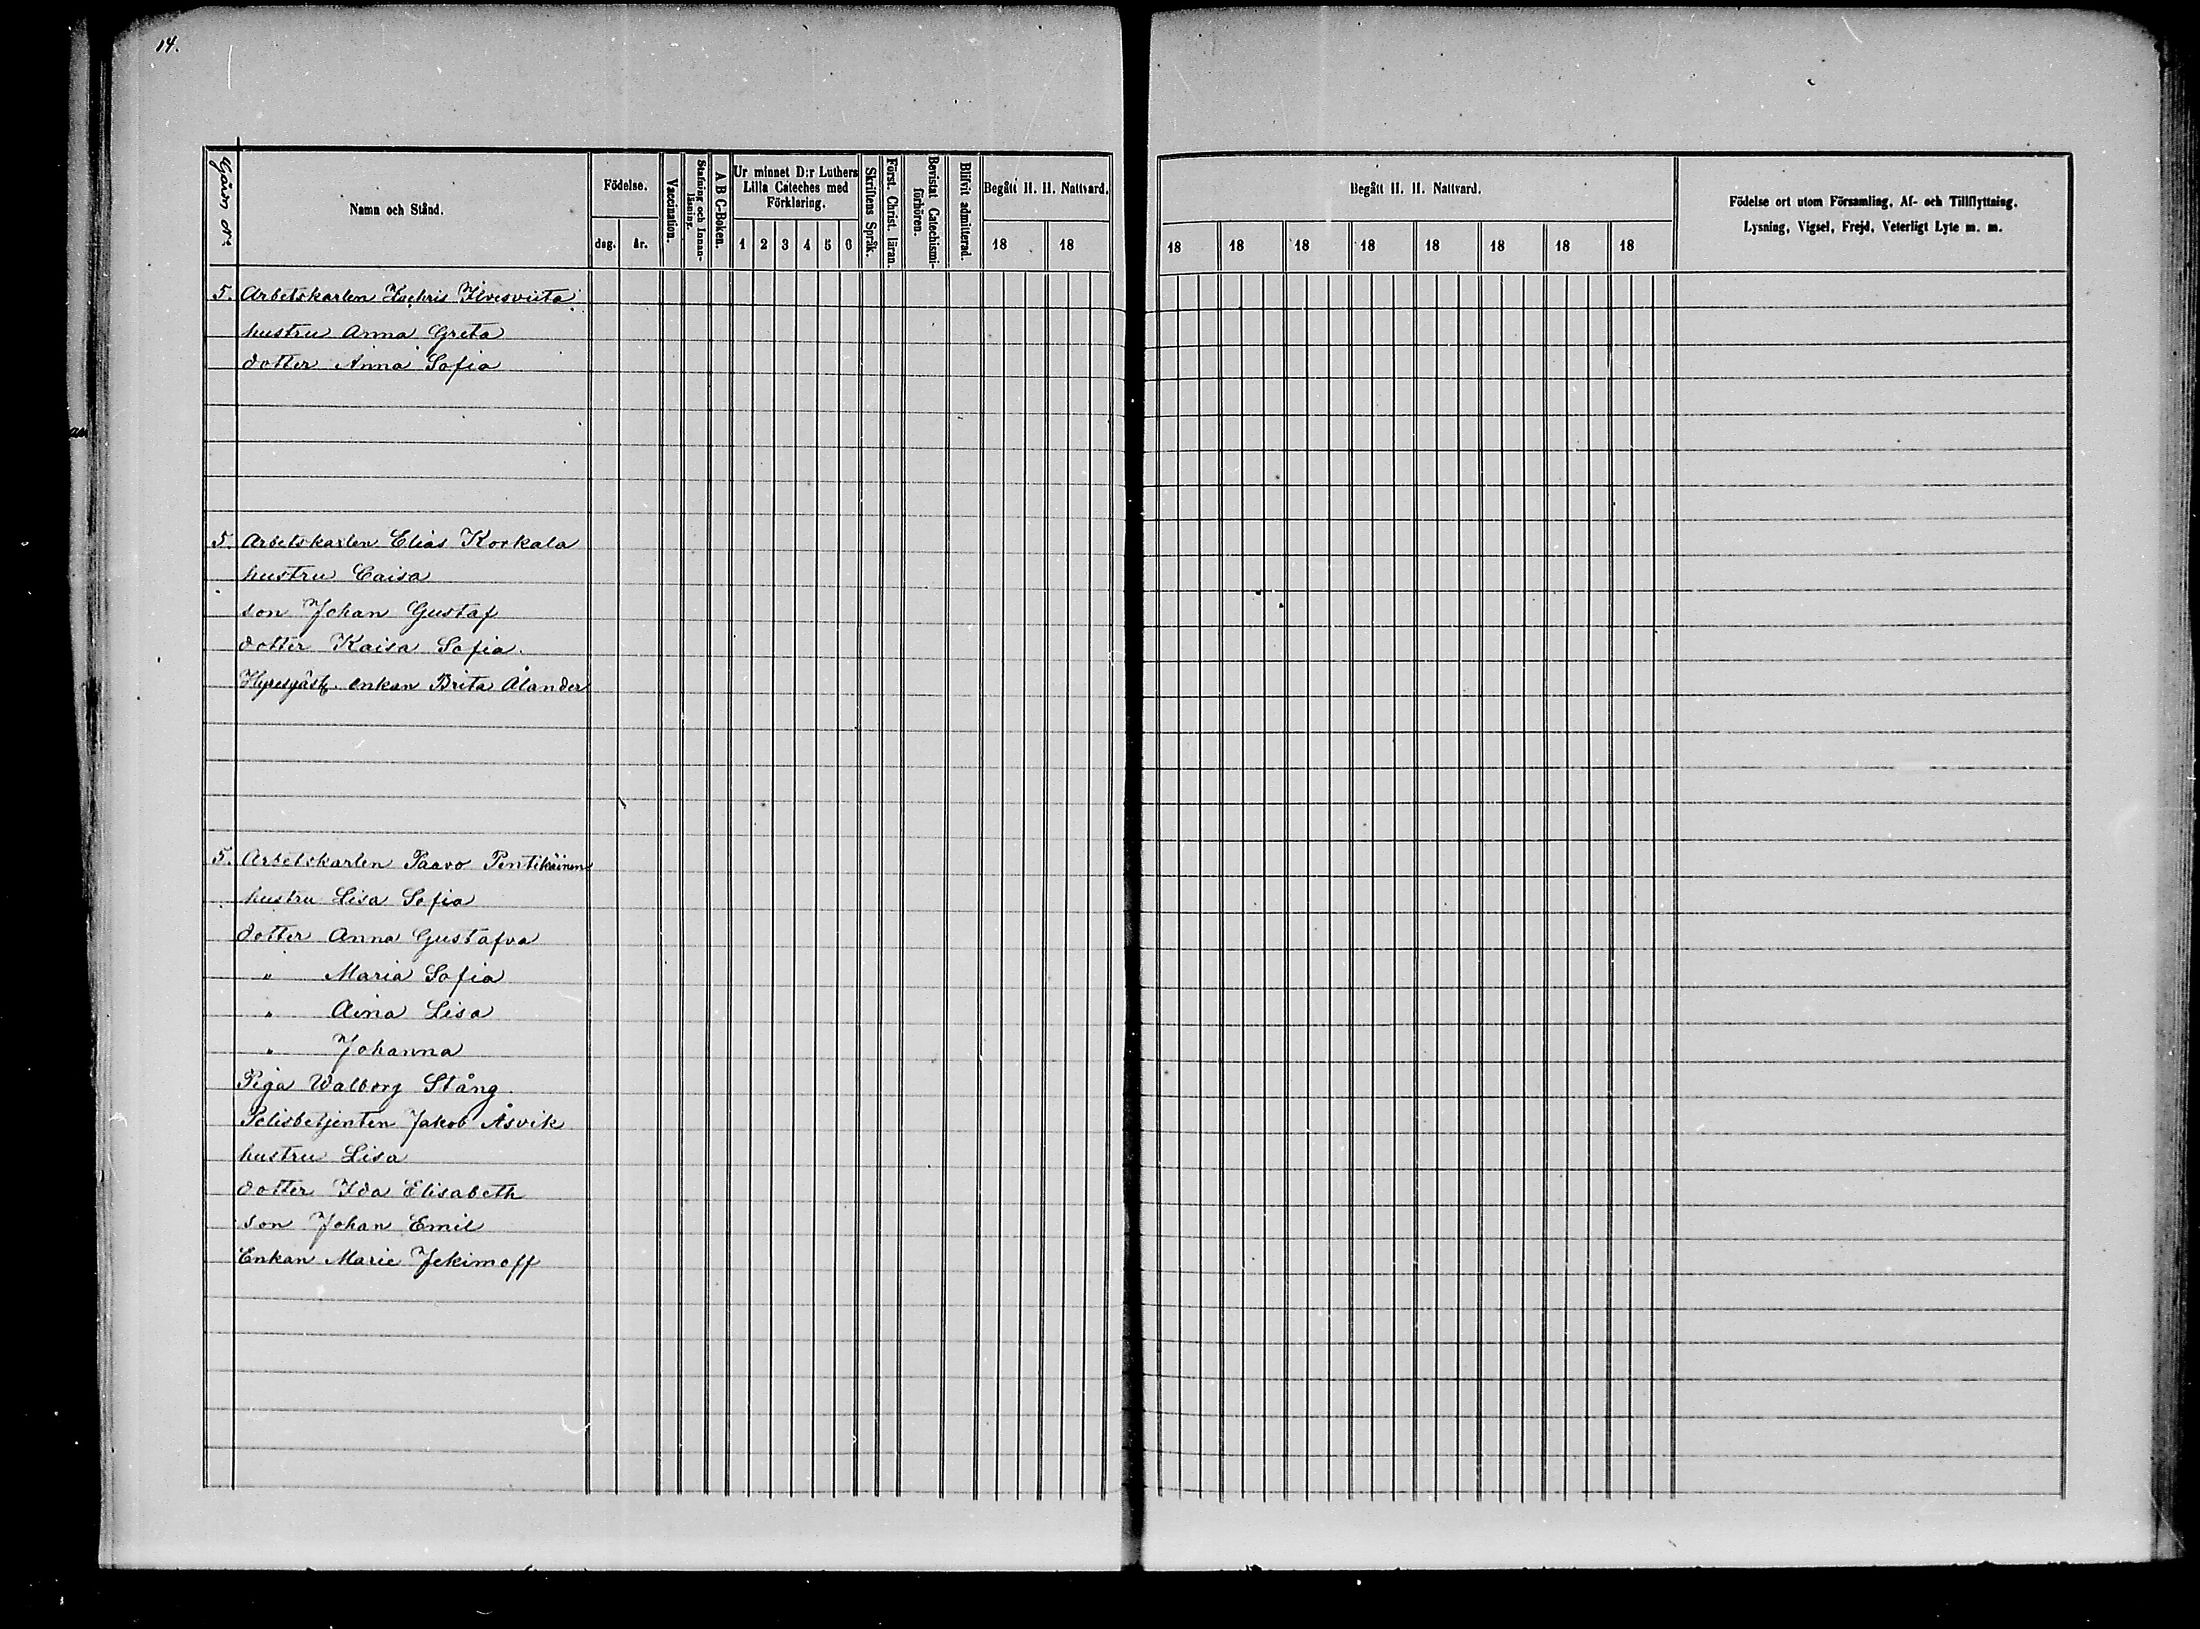 14.
Gåsn No.
Namn och Stånd.
Födelse.
dag. år.
Vaccination.
Stafning och Innanläsning.
A B C-Boken.
Ur minnet D:r Luthers Lilla Cateches med Förklaring.
1 2 3 4 5 6
Skriftens Språk.
Först. Christ. läran.
Bevistat Catechismiförhören.
Blifvit admitterad.
Begått H. H. Nattvard.
18 18
Begått H. H. Nattvard.
18 18 18 18 18 18 18 18
Födelse ort utom Församling, Af- och Tillflyttning,
Lysning, Vigsel, Frejd, Veterligt Lyte m. m.
5. Arbetskarlen Zachris Ilvesviita
hustru Anna Greta
dotter Anna Sofia
5. Arbetskarlen Elias Korkala
hustru Caisa
son Johan Gustaf
dotter Kaisa Sofia.
Hyresgäst enkan Brita Ålander
5. Arbetskarlen Paavo Pentikäinen
hustru Lisa Sofia
dotter Anna Gustafva
" Maria Sofia
" Aina Lisa
" Johanna
Piga Walborg Stång
Polisbetjenten Jakob Åsvik
hustru Lisa
dotter Ida Elisabeth
son Johan Emil
Enkan Marie Jekimoff